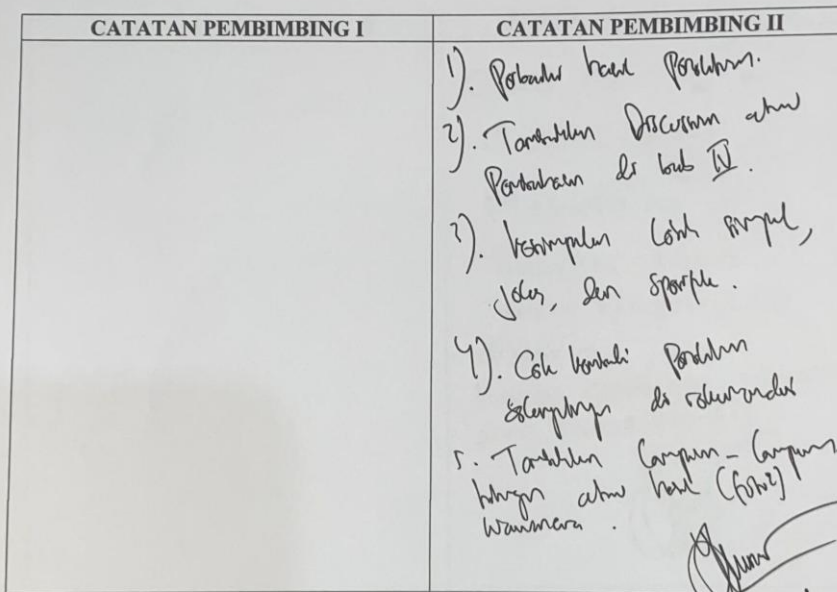 CATATAN PEMBIMBING I
CATATAN PEMBIMBING II
1). Perbaiki hasil Penelitian.
2). Tambahkan Discussion atau
Pembahasan di bab IV.
3). kesimpulan lebih simpel,
jelas, dan spesifik.
4). Cek kembali Penelitian
selanjutnya di rekomendasi
5. Tambahkan Lampiran-Lampiran
atau hasil (foto2)
wawancara.